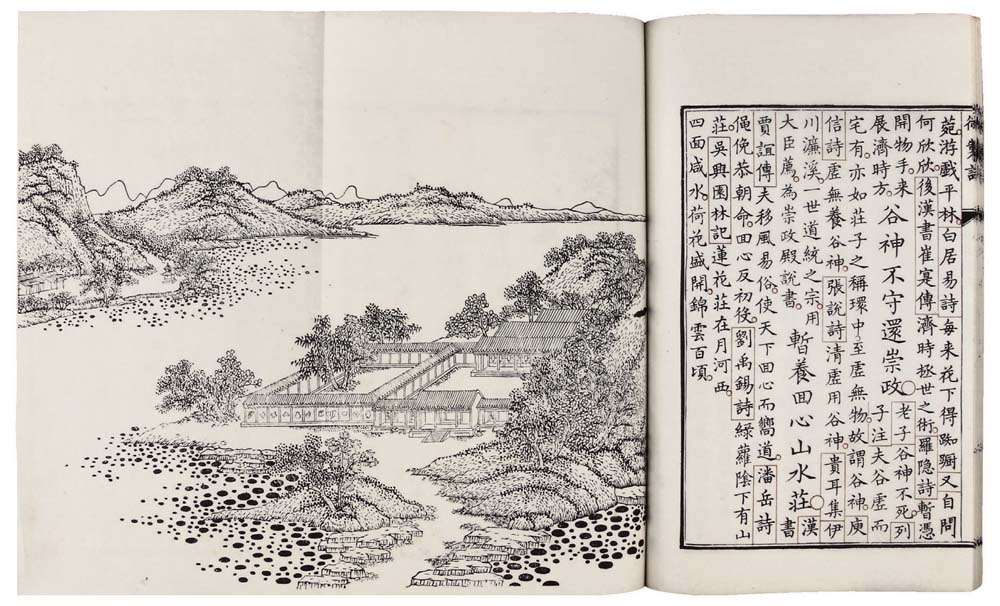 御製詩
菀游戲平林白居易詩每来花下得踟蹰又自問
何欣欣後漢書崔寔傳濟時拯世之術羅隐詩暫憑
開物手来
展濟時方
谷神不守還崇政
老子谷神不死列
子注夫谷虛而
宅有亦如莊子之稱環中至虛無物故謂谷神庾
信詩虛無養谷神張說詩清虛用谷神貴耳集伊
川濂溪一世道統之宗用
大臣薦為崇政殿說書
暫養回心山水莊
漢
書
賈誼傳夫移風易俗使天下回心而嚮道潘岳詩
僶俛恭朝命回心反初役劉禹錫詩緑蘿陰下有山
莊吳興園林記蓮花莊在月河西
四面咸水荷花盛開錦雲百頃